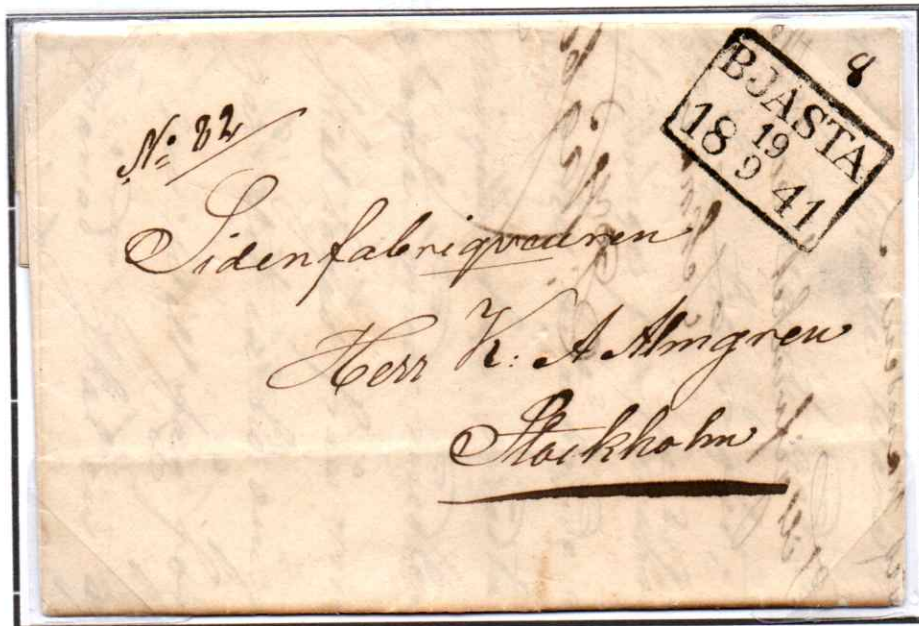 8
BJÄSTA
19
18 9 41
No 82
Sidenfabriqveuren
Herr K: A Almgren
Stockholm